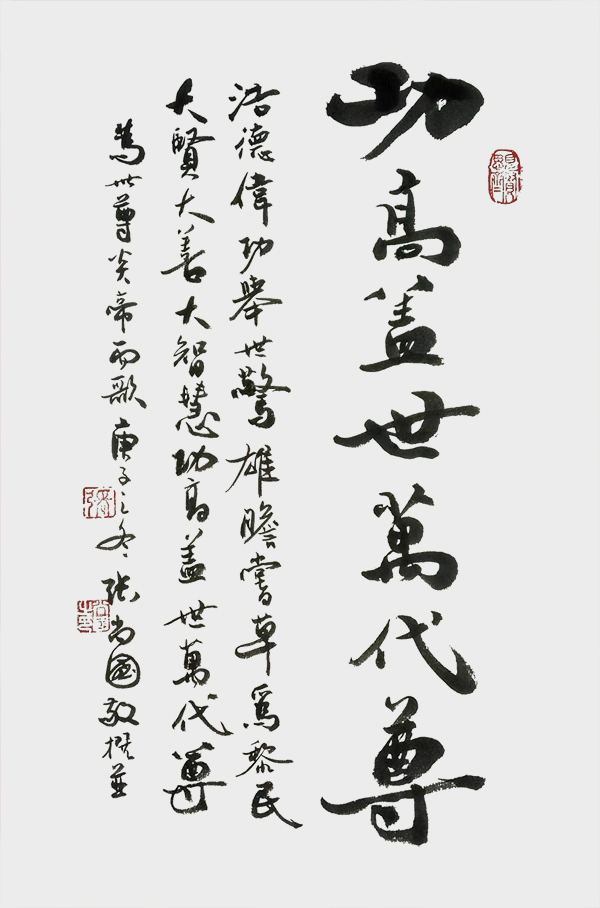 功高盖世萬代尊
浩德偉功舉世驚雄膽嘗草爲黎民
大賢大善大智慧功高盖世萬代尊
為世尊炎帝而歌庚子之冬張尚國敬撰並